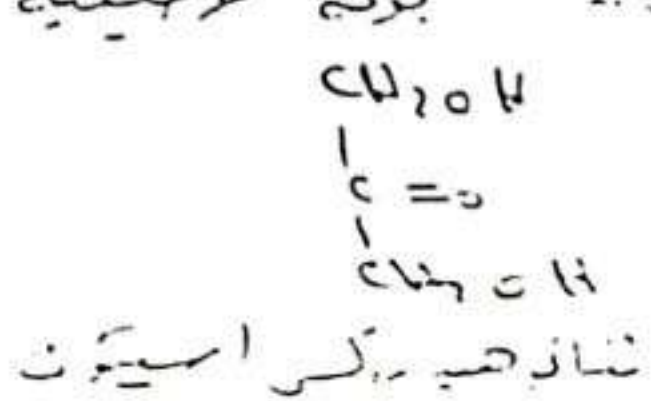 CH2OH
|
C=O
|
CH2OH
ثنائي هيدروكسي اسيتون